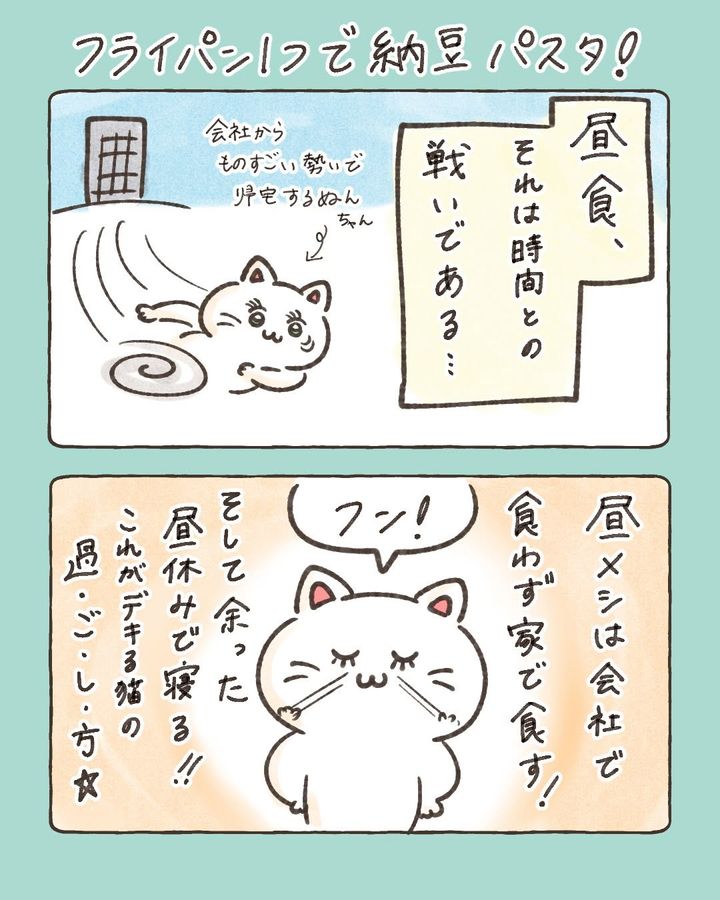 フライパン1つで納豆パスタ!
昼食、
それは時間との
戦いである…
会社から
ものすごい勢いで
帰宅するぬん
ちゃん
昼メシは会社で
食わず家で食す!
フン!
そして余った
昼休みで寝る!!
これがデキる猫の
過・ご・し・方☆